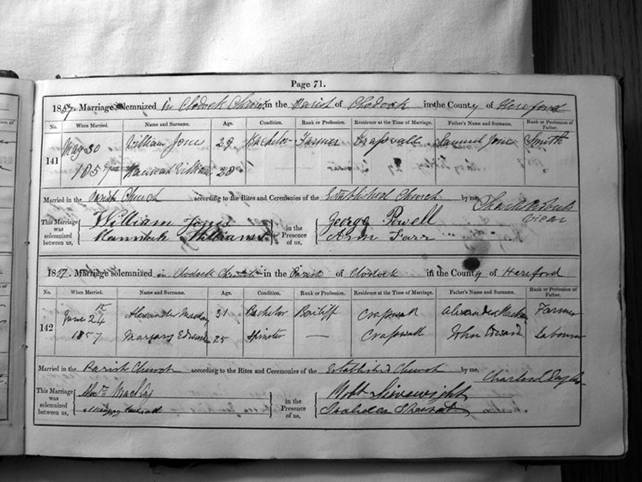 Page 71.
1857. Marriage solemnized in Clodock Church in the Parish of Clodock in the County of Hereford
No. When Married. Name and Surname. Age. Condition. Rank or Profession. Residence at the Time of Marriage. Father's Name and Surname. Rank or Profession of Father.
141 May 30 William Jones 29 Bachelor Farmer Craswall Samuel Jones Smith
1857 Hannah Williams 28
Married in the Parish Church according to the Rites and Ceremonies of the Established Church by me,
This Marriage was solemnized between us, William Jones in the Presence of us, George Powell Vicar
Hannah Williams Ann Farr
1857. Marriage solemnized in Clodock Church in the Parish of Clodock in the County of Hereford
No. When Married. Name and Surname. Age. Condition. Rank or Profession. Residence at the Time of Marriage. Father's Name and Surname. Rank or Profession of Father.
142 June 24th Alexander Mackay 31 Bachelor Bailiff Craswall Alexander Mackay Farmer
1857 Margary Edward 25 Spinster — Craswall John Edward Labourer
Married in the Parish Church according to the Rites and Ceremonies of the Established Church by me,
This Marriage was solemnized between us, Mackay in the Presence of us, Robt Sievwright
Isabella